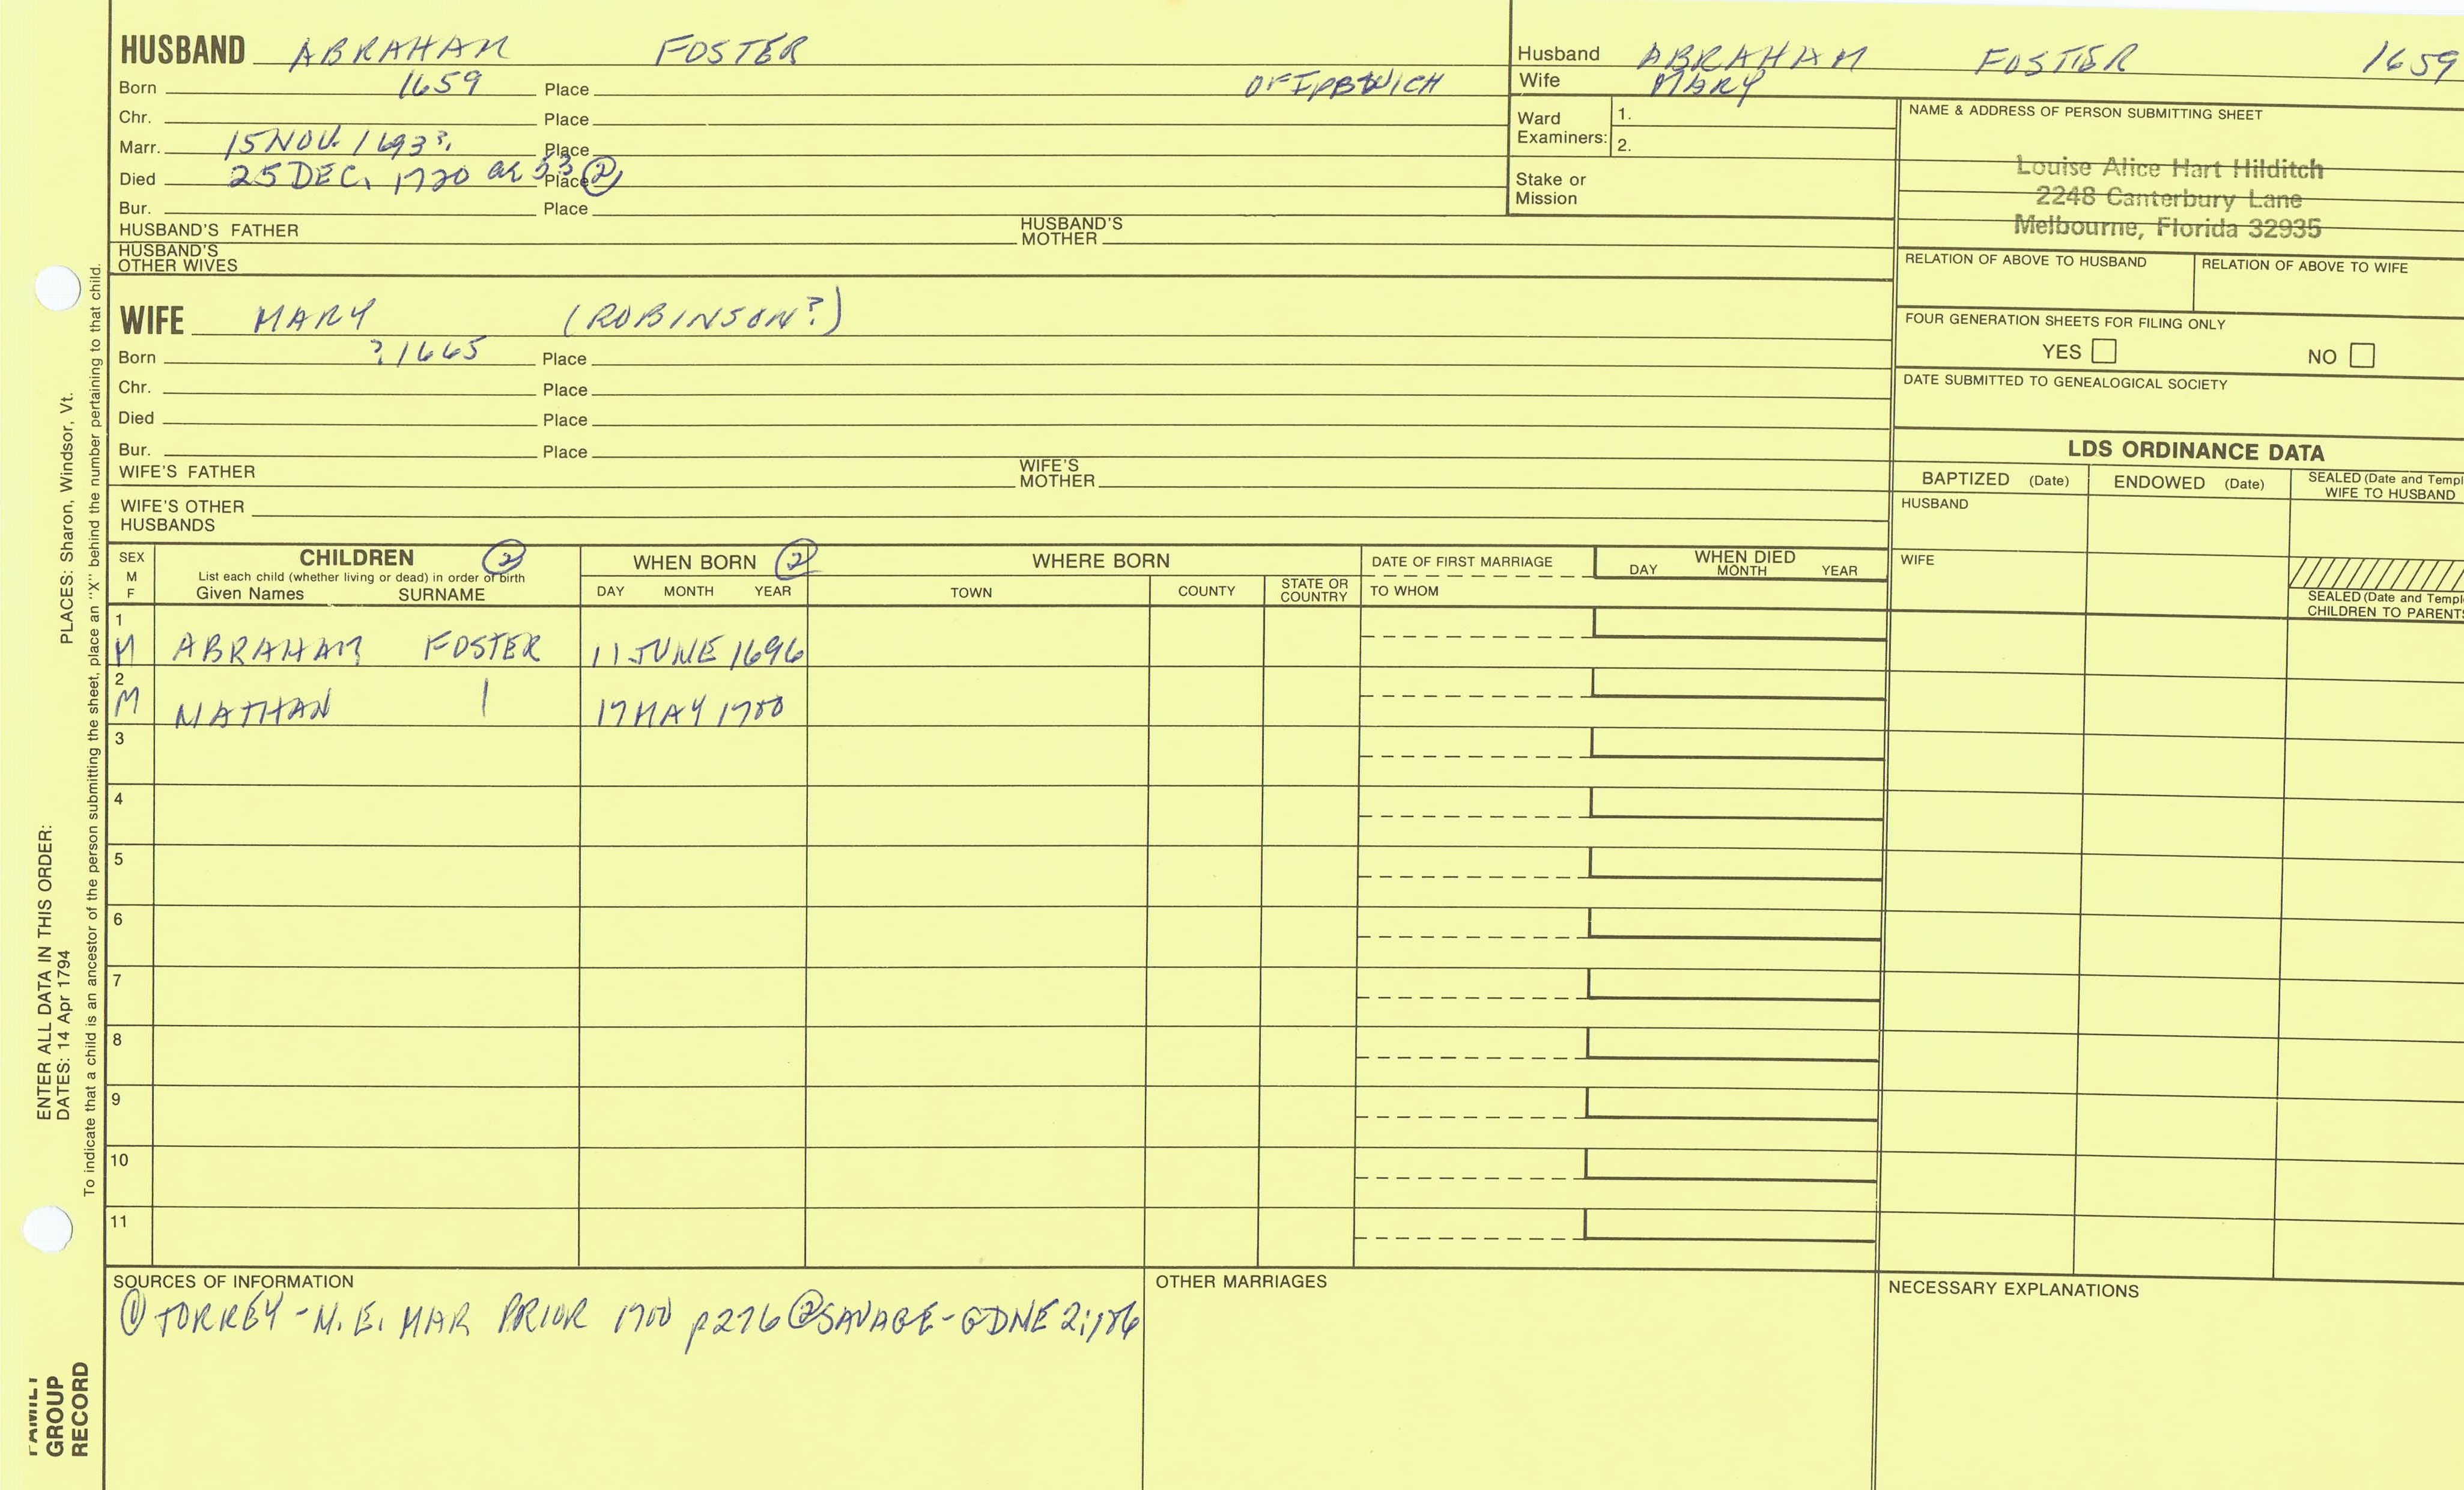 HUSBAND ABRAHAM FOSTER
Born 1659 Place OF IPSWICH
Chr. Place
Marr. 15 NOV. 1693?. Place
Died 25 DEC. 1720 ae 53 Place (2)
Bur. Place
HUSBAND'S FATHER HUSBAND'S MOTHER
HUSBAND'S OTHER WIVES
WIFE MARY (ROBINSON?)
Born ?1665 Place
Chr. Place
Died Place
Bur. Place
WIFE'S FATHER WIFE'S MOTHER
WIFE'S OTHER HUSBANDS
Husband ABRAHAM FOSTER 1659
Wife MARY
Ward Examiners: 1.
2.
Stake or Mission
NAME & ADDRESS OF PERSON SUBMITTING SHEET
Louise Alice Hart Hilditch
2248 Canterbury Lane
Melbourne, Florida 32935
RELATION OF ABOVE TO HUSBAND RELATION OF ABOVE TO WIFE
FOUR GENERATION SHEETS FOR FILING ONLY
YES NO
DATE SUBMITTED TO GENEALOGICAL SOCIETY
LDS ORDINANCE DATA
BAPTIZED (Date) ENDOWED (Date) SEALED (Date and Templ
WIFE TO HUSBAND
HUSBAND
WIFE
SEALED (Date and Templ
CHILDREN TO PARENTS
SEX M F
CHILDREN (2)
List each child (whether living or dead) in order of birth
Given Names SURNAME
WHEN BORN (2)
DAY MONTH YEAR
WHERE BORN
TOWN COUNTY STATE OR COUNTRY
DATE OF FIRST MARRIAGE
TO WHOM
WHEN DIED
DAY MONTH YEAR
1
M ABRAHAM FOSTER 11 JUNE 1696
2
M NATHAN | 17 MAY 1700
3
4
5
6
7
8
9
10
11
SOURCES OF INFORMATION
(1) TORREY - N.E. MAR PRIOR 1700 p276 (2) SAVAGE - GDNE 2:186
OTHER MARRIAGES
NECESSARY EXPLANATIONS
ENTER ALL DATA IN THIS ORDER:
DATES: 14 Apr 1794 PLACES: Sharon, Windsor, Vt.
To indicate that a child is an ancestor of the person submitting the sheet, place an "X" behind the number pertaining to that child.
FAMILY
GROUP
RECORD